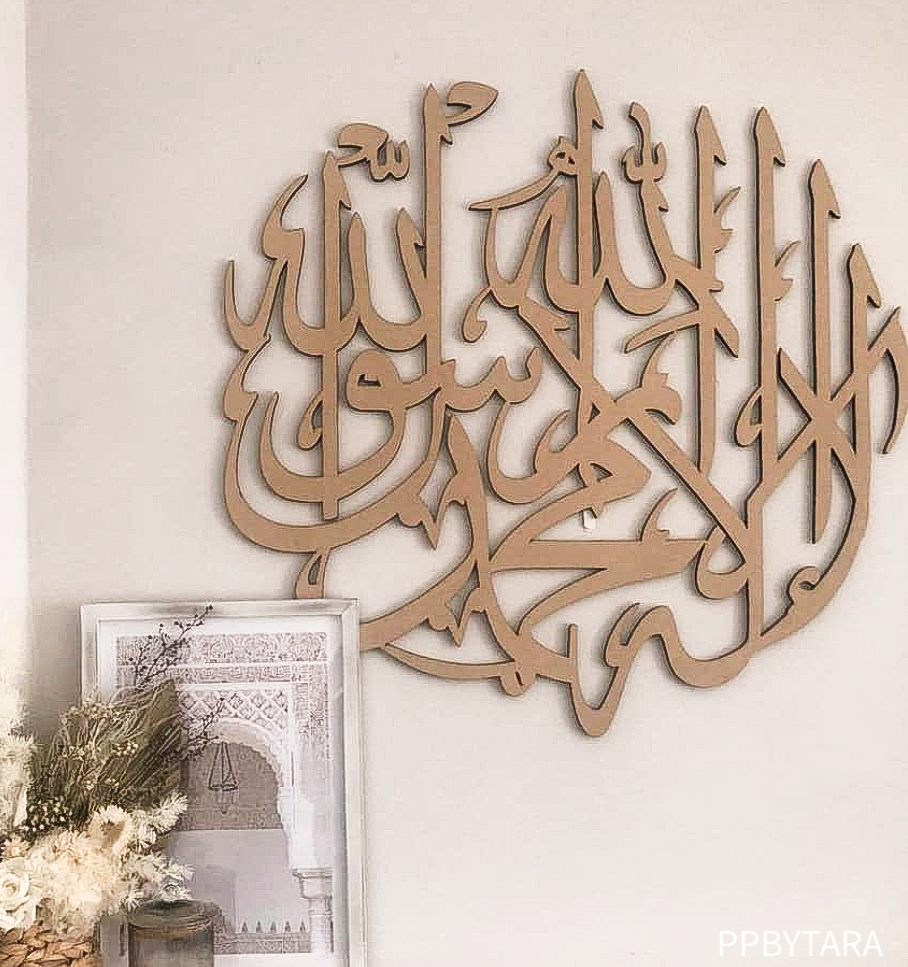 لا إله إلا الله محمد رسول الله
PPBYTARA